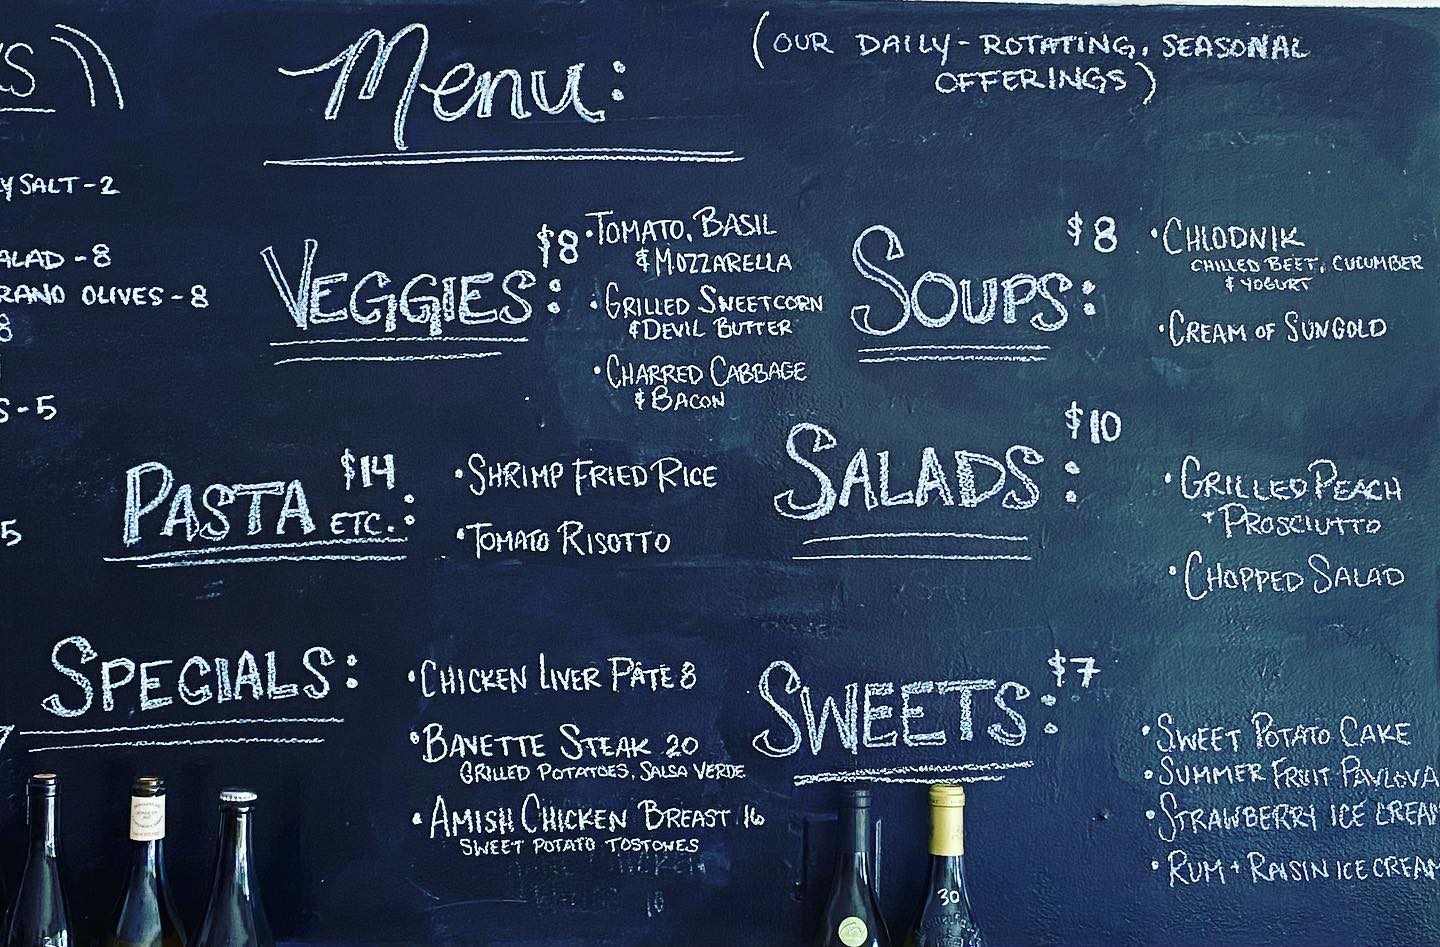 S
Menu:
(OUR DAILY-ROTATING, SEASONAL
OFFERINGS)
Y SALT-2
ALAD -8
RANO OLIVES-8
8
S-5
5
VEGGIES: $8
•TOMATO, BASIL
& MOZZARELLA
•GRILLED SWEETCORN
& DEVIL BUTTER
•CHARRED CABBAGE
& BACON
SOUPS: $8
•CHLODNIK
CHILLED BEET, CUCUMBER
& YOGURT
•CREAM OF SUNGOLD
PASTA ETC.: $14
•SHRIMP FRIED RICE
•TOMATO RISOTTO
SALADS: $10
•GRILLED PEACH
+ PROSCIUTTO
•CHOPPED SALAD
SPECIALS:
•CHICKEN LIVER PÂTÉ 8
•BAVETTE STEAK 20
GRILLED POTATOES, SALSA VERDE
•AMISH CHICKEN BREAST 16
SWEET POTATO TOSTONES
10
SWEETS: $7
•SWEET POTATO CAKE
•SUMMER FRUIT PAVLOVA
•STRAWBERRY ICE CREAM
•RUM + RAISIN ICE CREAM
30